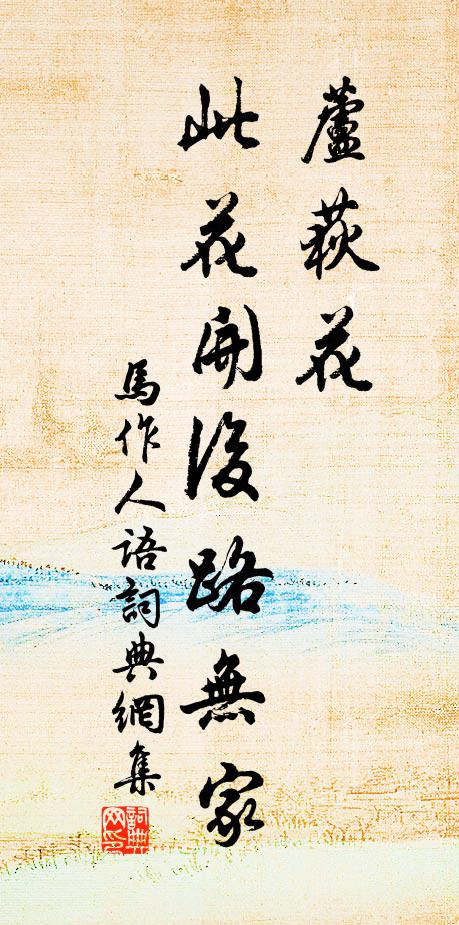 蘆荻花
此花開後路無家
馬作人語詞典網集
詞典
网印